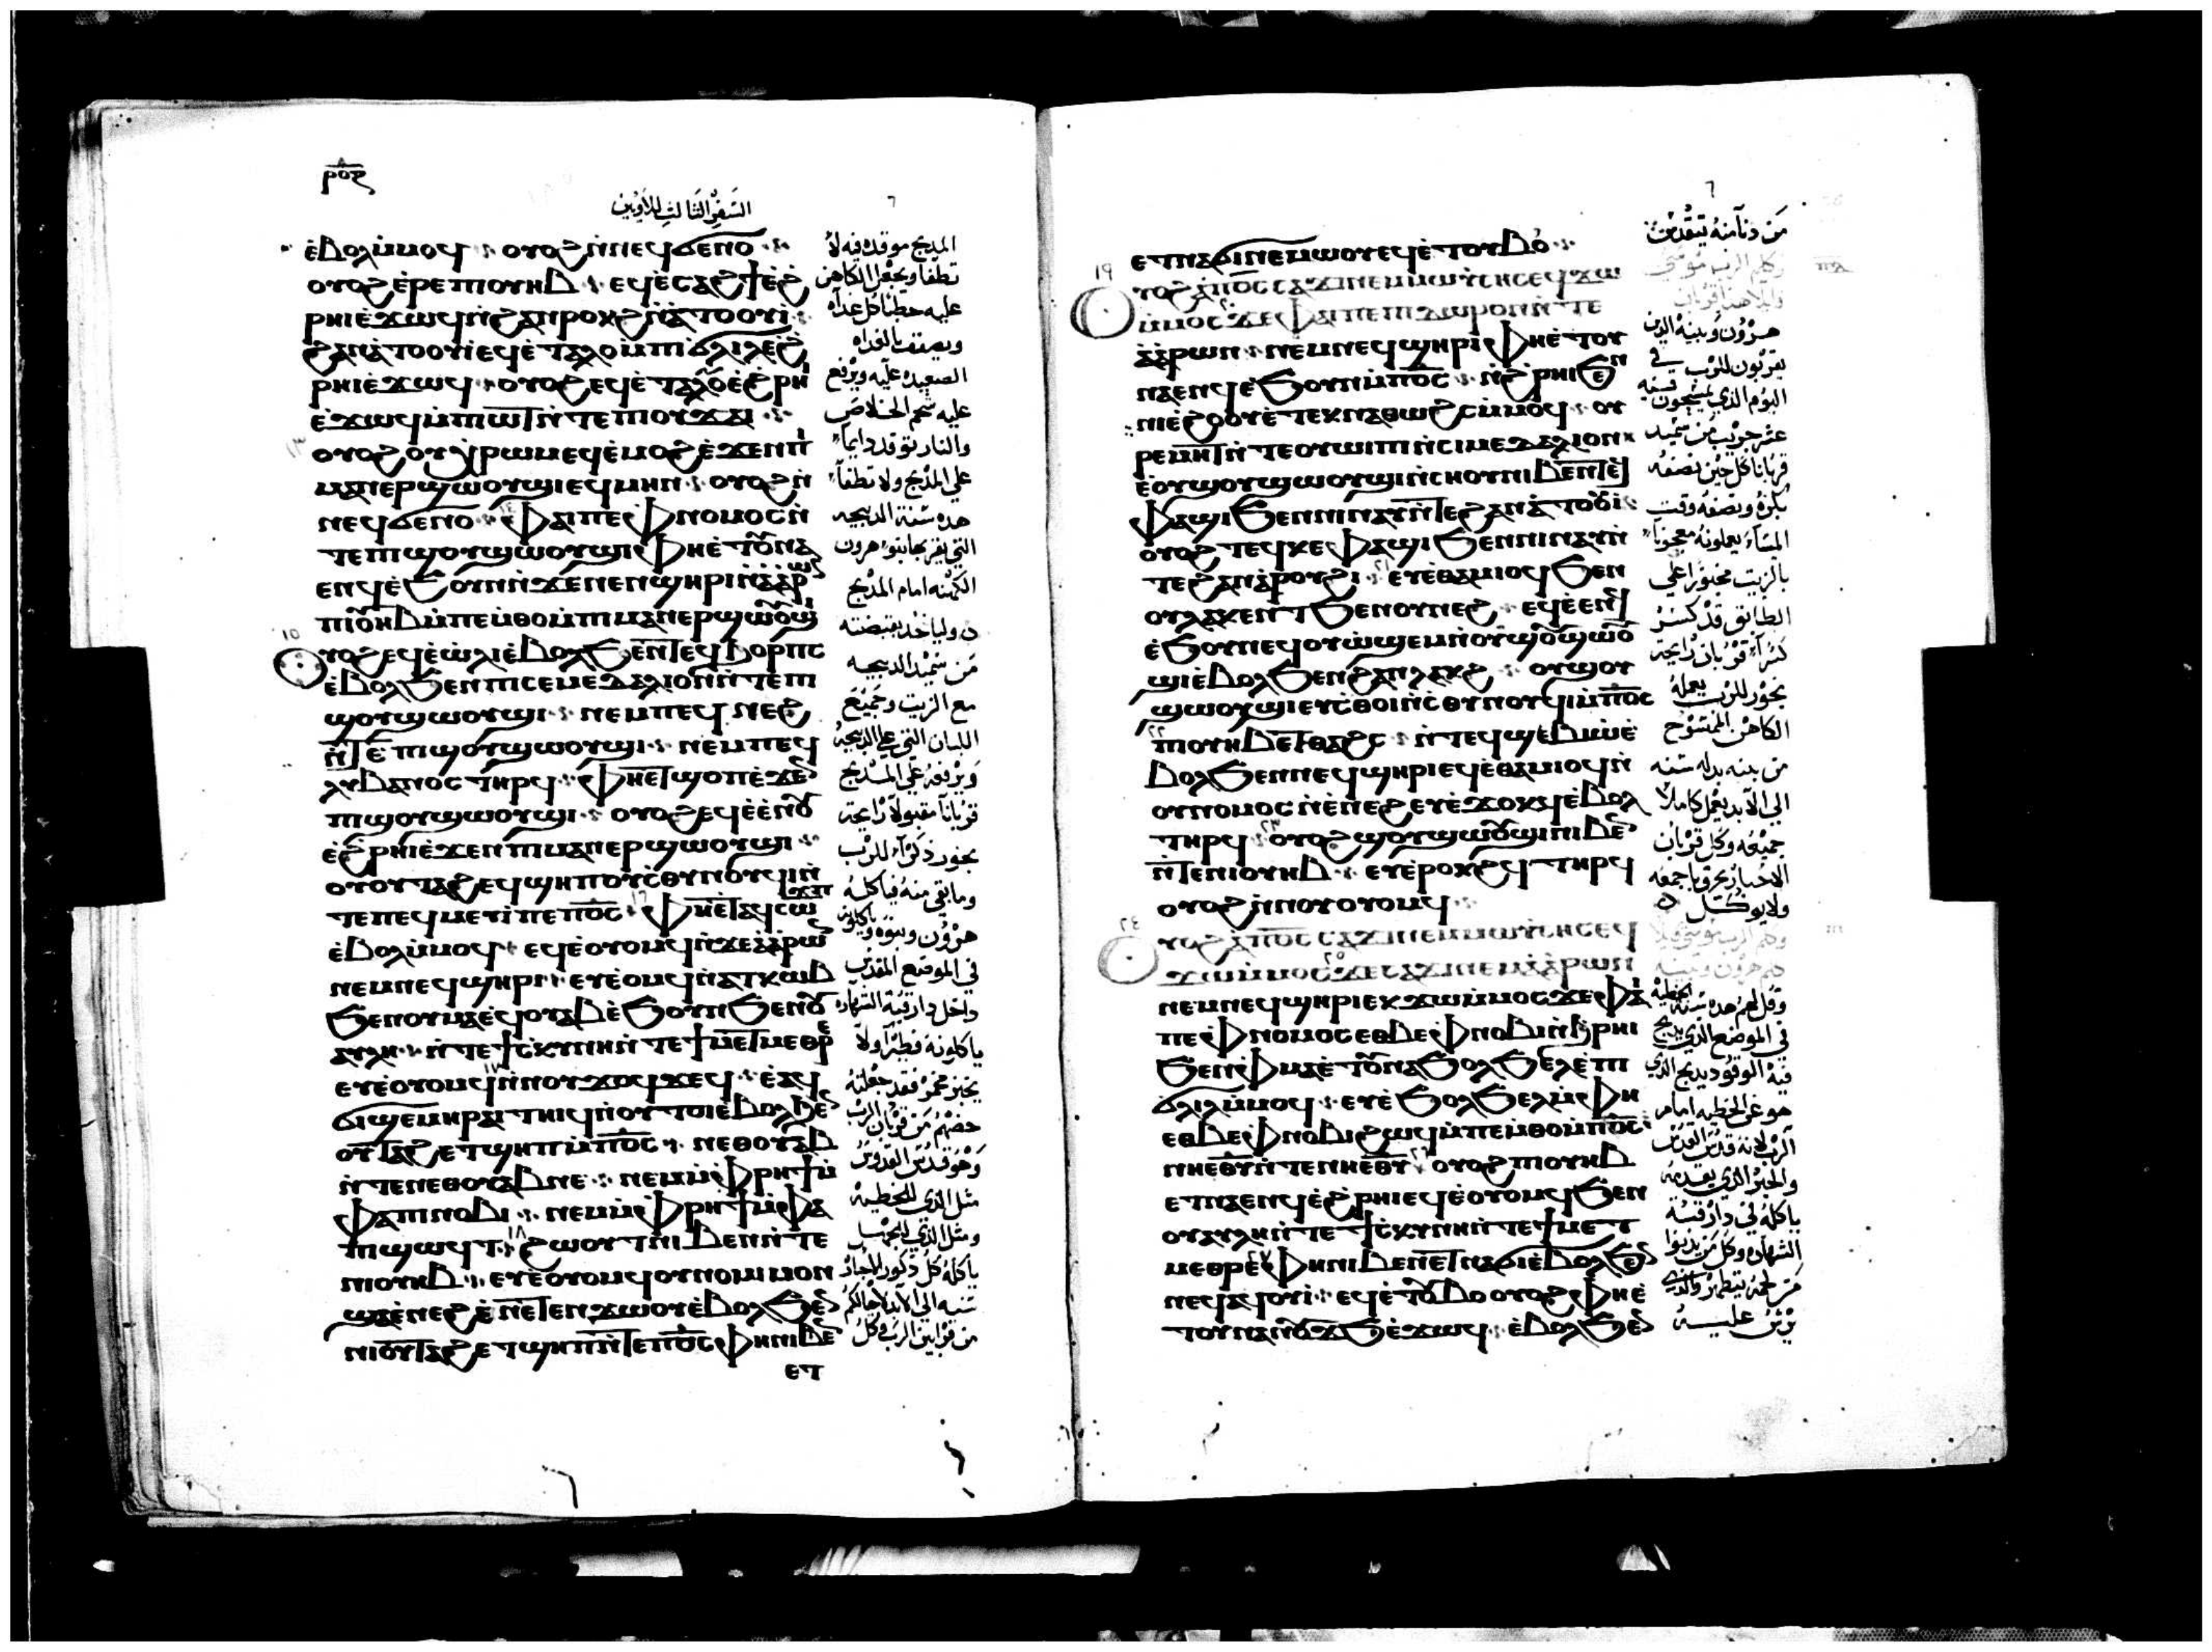 ⲣⲟⲍ
السفر الثالث للاويين
ⲉⲃⲟⲗⲙ̀ⲙⲟϥ ⲟⲩⲟϩⲛ̀ⲛⲉϥϭⲉⲛⲟ
ⲟⲩⲟϩ ⲉ̀ⲣⲉ ⲡⲓⲟⲩⲏⲃ ⲉϥⲉ̀ⲥⲁϩϯⲉ̀ϩ
ⲣⲏⲓⲉ̀ϫⲱϥⲛ̀ϩⲁⲛⲣⲟⲕϩⲛ̀ⲁ̀ⲧⲟⲟⲩⲓ̀
ϩⲁⲛⲁ̀ⲧⲟⲟⲩⲓ̀ ⲉϥⲉ̀ⲧⲁⲗⲟⲙ̀ⲡⲓϭⲗⲓⲗⲉ̀ϩ
ⲣⲏⲓⲉ̀ϫⲱϥ ⲟⲩⲟϩ ⲉϥⲉ̀ⲧⲁⲗⲟⲉ̀ϩⲣⲏⲓ
ⲉ̀ϫⲱϥⲙ̀ⲡⲱⲧⲛ̀ⲧⲉ ⲡⲓⲟⲩϫⲁⲓ
ⲟⲩⲟϩ ⲟⲩⲭⲣⲱⲙⲉϥⲉ̀ⲙⲟϩⲉ̀ϫⲉⲛⲡⲓ
ⲙⲁⲛⲉⲣϣⲱⲟⲩϣⲓⲉϥⲙⲏⲛ ⲟⲩⲟϩⲛ̀
ⲛⲉϥϭⲉⲛⲟ ⲫⲁⲓⲡⲉⲫⲛⲟⲙⲟⲥⲛ̀
ⲧⲉⲡϣⲟⲩϣⲱⲟⲩϣⲓⲫⲏⲉ̀ⲧⲟⲩⲛⲁ
ⲉⲛϥⲉ̀ϧⲟⲩⲛⲛ̀ϫⲉⲛⲉⲛϣⲏⲣⲓⲛ̀ⲁ̀ⲁ̀ⲣⲱⲛ
ⲡⲓⲟⲩⲏⲃⲙ̀ⲡⲉⲙ̀ⲑⲟⲙ̀ⲡⲓⲙⲁⲛⲉⲣϣⲱⲟⲩϣⲓ
ⲟⲩⲟϩ ⲉϥⲉ̀ⲱ̀ⲗⲓⲉ̀ⲃⲟⲗϧⲉⲛⲧⲉϥⲕⲟⲣⲡⲥ
ⲉ̀ⲃⲟⲗϧⲉⲛ ⲡⲓⲥⲉⲙⲉⲇⲁⲗⲓⲟⲛⲛ̀ⲧⲉⲡⲓ
ϣⲟⲩϣⲱⲟⲩϣⲓ ⲛⲉⲙⲡⲉϥ ⲛⲉϩ
ⲛ̀ⲧⲉ ⲡϣⲟⲩϣⲱⲟⲩϣⲓ ⲛⲉⲙⲡⲉϥ
ⲗⲩⲃⲁⲛⲟⲥ ⲧⲏⲣϥ ⲫⲏⲉⲧϣⲟⲡⲉ̀ϫⲉⲛ
ⲡϣⲟⲩϣⲱⲟⲩϣⲓ ⲟⲩⲟϩ ⲉϥⲉ̀ⲉ̀ⲛⲟⲩ
ⲉ̀ϩⲣⲏⲓⲉ̀ϫⲉⲛ ⲡⲓⲙⲁⲛⲉⲣϣⲱⲟⲩϣⲓ
ⲟⲩⲟⲩⲧⲁϩ ⲉϥϣⲏⲡⲟⲩⲥ̀ⲑⲩⲛⲟⲩϥⲓⲛ̀
ⲧⲉⲡⲉϥⲙⲉⲩⲓ̀ⲡⲉⲡϭⲟⲓⲥ ⲫⲏⲉⲧⲁϥⲥⲱϫⲡ
ⲉ̀ⲃⲟⲗⲙ̀ⲙⲟϥ ⲉϥⲉ̀ⲟⲩⲟⲙϥⲛ̀ϫⲉⲁ̀ⲁ̀ⲣⲱⲛ
ⲛⲉⲙⲛⲉϥϣⲏⲣⲓ ⲉⲩⲉ̀ⲟⲩⲟⲙϥⲛ̀ⲁⲧⲕⲱⲃ
ϧⲉⲛⲟⲩⲙⲁⲉϥⲟⲩⲁⲃⲉ̀ϧⲟⲩⲛϧⲉⲛⲟⲩ
ⲁⲩⲗⲏ ⲛ̀ⲧⲉ ϯⲥⲕⲩⲛⲏⲛ̀ⲧⲉ ϯⲙⲉⲧⲙⲉⲑⲣⲉ
ⲉⲩⲉ̀ⲟⲩⲟⲙϥⲛ̀ⲛⲟⲩϫⲁϥϫⲉϥ ⲉ̀ⲁϥ
ϭⲓϣⲉⲙⲏⲣⲁⲓ ⲧⲏⲓϥⲛ̀ⲟⲩⲧⲟⲓⲉ̀ⲃⲟⲗϧⲉⲛ
ⲟⲩⲧⲁϩ ⲉⲧϣⲏⲡⲙ̀ⲡϭⲟⲓⲥ ⲛⲉⲑⲟⲩⲁⲃ
ⲛ̀ⲧⲉⲛⲉⲑⲟⲩⲁⲃⲛⲉ ⲛⲉⲙⲙ̀ⲫⲣⲏϯⲙ̀
ⲫⲁⲡⲛⲟⲃⲓ ⲛⲉⲙⲙ̀ⲫⲣⲏϯⲙ̀ⲫⲁ
ⲡϣⲱϥⲧ ϩⲱⲟⲩⲧⲛⲓⲃⲉⲛⲛ̀ⲧⲉ
ⲡⲓⲟⲩⲏⲃ ⲉⲩⲉ̀ⲟⲩⲟⲙϥⲟⲩⲛⲟⲙⲓⲙⲟⲛ
ϣⲁⲉ̀ⲛⲉϩ ⲉ̀ⲛⲉⲧⲉⲛϫⲱⲟⲩⲉ̀ⲃⲟⲗϧⲉⲛ
ⲛⲓⲟⲩⲧⲁϩ ⲉⲧϣⲏⲡⲛ̀ⲧⲉⲡϭⲟⲓⲥⲫⲏⲛⲓⲃⲉⲛ
ⲉⲧ
المدبح موقده فيه لا
تطفا ويجعل الكاهن
عليه حطبا كل غداه
ويصفف بالغداه
الصعيده عليه ويرفع
عليه شحم الخلاص
والنار توقد دايما
علي المدبح ولا تطفا
هده سنة الدبيحه
التي يقربها بنوا هرون
الكهنه امام المدبح
ولياخد بقبضته
من سميد الدبيحه
مع الزيت وجميع
اللبان التي علي الدبيحه
ويرفعه علي المدبح
قربانا مقبولا رايحة
بخور ذكرا للرب
وما بقي منه فياكله
هرون وبنوه
في الموضع المقدس
داخل دار قبة الشهاده
ياكلونه فطيرا ولا
يخبز مخمر فقد جعلته
حضهم من قربان الرب
وهو قدس القدوس
مثل الذي للخطيه
ومثل الذي للجهل
ياكله كل ذكور الاحبار
سنه الي الابد لاجيالكم
من قرابين الرب وكل
ⲉⲧⲛⲁϭⲓⲛⲉⲙⲱⲟⲩⲉϥⲉ̀ⲧⲟⲩⲃⲟ
ⲟⲩⲟϩ ⲁ̀ⲡϭⲟⲓⲥ ⲥⲁϫⲓⲛⲉⲙⲙⲱⲩⲥⲏⲥⲉϥϫⲱ
ⲙ̀ⲙⲟⲥ ϫⲉⲫⲁⲓⲡⲉⲡⲓⲇⲱⲣⲟⲛⲛ̀ⲧⲉ
ⲁ̀ⲁ̀ⲣⲱⲛ ⲛⲉⲙⲛⲉϥϣⲏⲣⲓⲫⲏⲉ̀ⲧⲟⲩ
ⲛⲁⲉⲛϥⲉ̀ϧⲟⲩⲛⲙ̀ⲡϭⲟⲓⲥ ⲛ̀ϩⲣⲏⲓϧⲉⲛ
ⲡⲓⲉ̀ϩⲟⲟⲩⲉ̀ⲧⲉⲕⲛⲁⲑⲱϩⲥⲙ̀ⲙⲟϥ ⲟⲩ
ⲣⲉⲙⲏⲧⲛ̀ⲧⲉⲟⲩⲱⲓⲡⲓⲛ̀ⲥⲓⲙⲉⲇⲁⲗⲓⲟⲛ
ⲉ̀ⲟⲩϣⲟⲩϣⲱⲟⲩϣⲓⲛ̀ⲥⲏⲟⲩⲛⲓⲃⲉⲛⲧⲉ
ⲫⲁϣⲓϧⲉⲛⲛⲓⲛⲁⲩⲛ̀ⲧⲉϩⲁⲛⲁ̀ⲧⲟⲟⲩⲓ
ⲟⲩⲟϩ ⲧⲉϥⲕⲉⲫⲁϣⲓϧⲉⲛⲛⲓⲛⲁⲩⲛ̀
ⲧⲉϩⲁⲛⲁ̀ⲣⲟⲩϩⲓ ⲉⲩⲉ̀ⲑⲁⲙⲓⲟϥϧⲉⲛ
ⲟⲩⲗⲁⲕⲉⲛⲧϧⲉⲛⲟⲩⲛⲉϩ ⲉϥⲉ̀ⲉⲛϥ
ⲉ̀ϧⲟⲩⲛⲉϥⲟⲩⲱϣⲉⲙⲛ̀ⲟⲩϣⲟⲩϣⲱⲟⲩ
ϣⲓⲉ̀ⲃⲟⲗϧⲉⲛϩⲁⲛⲗⲁⲕϩ ⲟⲩϣⲟⲩ
ϣⲱⲟⲩϣⲓⲉⲩⲥ̀ⲑⲟⲓⲛ̀ⲥⲑⲩⲛⲟⲩϥⲓⲙ̀ⲡϭⲟⲓⲥ
ⲡⲓⲟⲩⲏⲃⲉⲧⲑⲁϩⲥ ⲛ̀ⲧⲉϥϣⲉⲃⲓⲱ̀ⲉ̀
ⲃⲟⲗϧⲉⲛⲛⲉϥϣⲏⲣⲓⲉϥⲉ̀ⲑⲁⲙⲓⲟϥⲛ̀
ⲟⲩⲛⲟⲙⲟⲥⲛ̀ⲉ̀ⲛⲉϩ ⲉⲩⲉ̀ϫⲟⲕϥⲉ̀ⲃⲟⲗ
ⲧⲏⲣϥ ⲟⲩⲟϩ ϣⲟⲩϣⲱⲟⲩϣⲓⲛⲓⲃⲉⲛ
ⲛ̀ⲧⲉⲡⲓⲟⲩⲏⲃ ⲉⲩⲉ̀ⲣⲟⲕϩϥ ⲧⲏⲣϥ
ⲟⲩⲟϩⲛ̀ⲛⲟⲩⲟⲩⲟⲙϥ
ⲟⲩⲟϩ ⲁ̀ⲡϭⲟⲓⲥ ⲥⲁϫⲓⲛⲉⲙⲙⲱⲩⲥⲏⲥⲉϥ
ϫⲱⲙ̀ⲙⲟⲥ ϫⲉⲥⲁϫⲓⲛⲉⲙⲁ̀ⲁ̀ⲣⲱⲛ
ⲛⲉⲙⲛⲉϥϣⲏⲣⲓⲉⲕϫⲱⲙ̀ⲙⲟⲥ ϫⲉⲫⲁⲓ
ⲡⲉⲫⲛⲟⲙⲟⲥⲉⲑⲃⲉⲫⲛⲟⲃⲓⲛ̀ϩⲣⲏⲓ
ϧⲉⲛⲫⲙⲁⲉ̀ⲧⲟⲩⲛⲁϧⲟⲗϧⲉⲗⲉ̀ⲡⲓ
ϭⲗⲓⲗⲙ̀ⲙⲟϥ ⲉⲩⲉ̀ϧⲟⲗϧⲉⲗⲙ̀ⲫⲏ
ⲉⲑⲃⲉⲫⲛⲟⲃⲓϩⲱϥⲙ̀ⲡⲉⲙ̀ⲑⲟⲙ̀ⲡϭⲟⲓⲥ
ⲛⲏⲉⲑⲩⲛ̀ⲧⲉⲛⲏⲉⲑⲩ ⲟⲩⲟϩ ⲡⲓⲟⲩⲏⲃ
ⲉⲧⲛⲁⲉⲛϥⲉ̀ϩⲣⲏⲓⲉϥⲉ̀ⲟⲩⲟⲙϥϧⲉⲛ
ⲟⲩⲁⲩⲗⲏⲛ̀ⲧⲉ ϯⲥⲕⲩⲛⲏⲛ̀ⲧⲉ ϯⲙⲉⲧ
ⲙⲉⲑⲣⲉ ⲫⲏⲛⲓⲃⲉⲛⲉⲧⲛⲁϭⲓⲉ̀ⲃⲟⲗϧⲉⲛ
ⲛⲉϥⲁϥⲟⲩⲓ̀ ⲉϥⲉ̀ⲧⲟⲩⲃⲟ ⲟⲩⲟϩⲫⲏⲉ̀
ⲧⲟⲩⲛⲁⲛⲟⲩϫϧⲉ̀ϫⲱϥ ⲉ̀ⲃⲟⲗϧⲉⲛ
من دنا منه يتقدس
وكلم الرب موسي
قايلا هذا قربان
هرون وبنيه الذين
يقربون للرب في
اليوم الذي تمسحون فيه
عشر جريب من سميد
قربانا كل حين نصفه
بكره ونصفه وقت
المساء يعملونه معجونا
بالزيت مخبوزا علي
الطابق قد كسر
كسرا قربان رايحة
بخور للرب يعمله
الكاهن الممسوح
من بنيه بدله سنه
الي الابد يعمل كاملا
جميعه وكل قربان
الاحبار يحرق باجمعه
ولا يوكل
وكلم الرب موسي قايلا
كلم هرون وبنيه
وقل لهم هده سنة الخطيه
في الموضع الذي يدبح
فيه الوقود يدبح الذي
هو عن الخطيه امام
الرب لانه قدس القدس
والحبر الذي يقدمه
ياكله في دار قبة
الشهاده وكل من يدنوا
من لحمه يتطهر والذي
يرش عليه